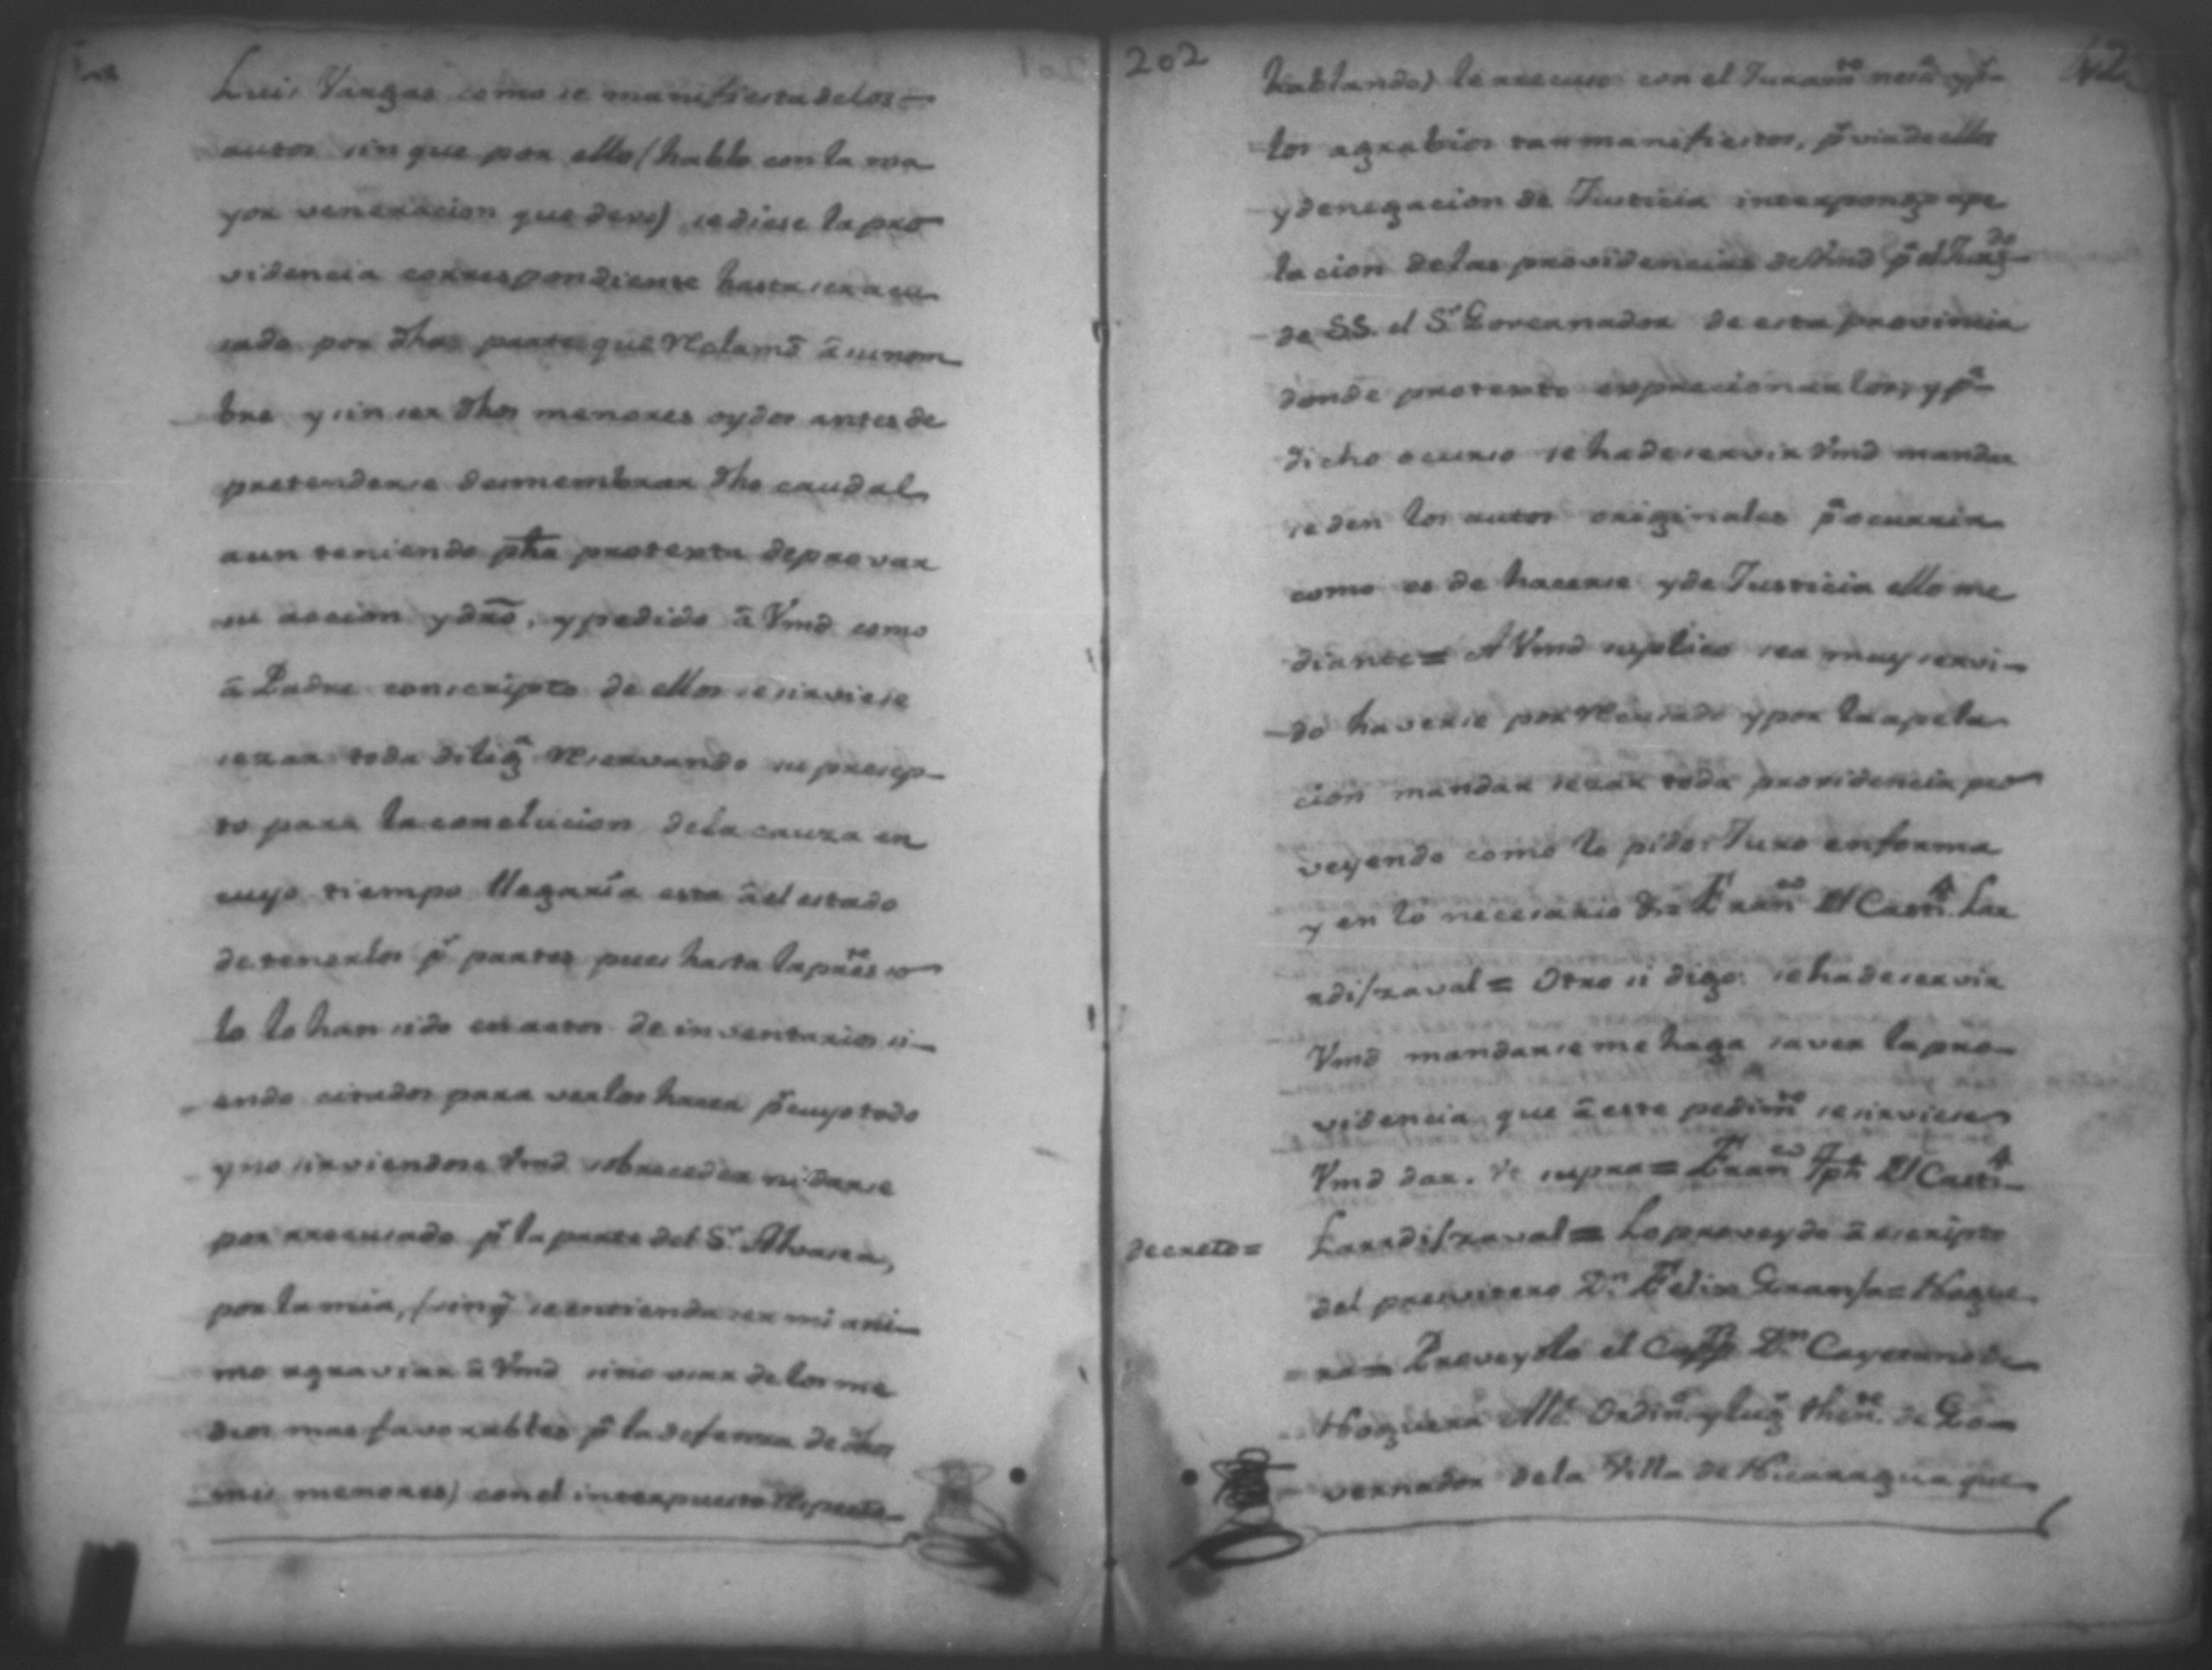 Luis Vargas como se manifiesta delos =
autos sin que por ello (hablo con la ma
yor veneracion que devo) se diese la pro
videncia correspondiente hasta ser acu
sado por dhas partes que Reclamõ â su nom
bre y sin ser dhos menores oydos antes de
pretenderse desmembrar dho caudal
aun teniendo pħa protexta de provar
su accion y dr̃o, y pedido â Vmd como
â Padre conscripto de ellos se sirviese
sezar toda dilig.ª Reservando su presep-
to para la conclucion dela cauza en
cuyo tiempo llegaría esta âel estado
de tenerlos p.r partes pues hasta la pres.te so
lo lo han sido en autos de inventarios si-
endo citados para verlos hacer p.r cuyo todo
y no sirviendose Vmd sobreceder ni darse
por rrecusado p.r la parte del S.r Alvarez,
por la mia, (sin q̃ se entienda ser mi ani-
mo agraviar â Vmd sino usar de los me
dios mas favorables p.ª la defensa de dhos
mis menores) con el interpuesto Respecto
202
hablando) le rrecuso con el Juram.to nesº y p.r
los agrabios tan manifiestos, p.r via de ellos
y denegacion de Justicia interpongo ape
lacion delas providencias de Vmd p.ª el Juzg.do
de SS. el S.r Governador de esta provincia
donde protexto exprecionarlos, y p.ª
dicho ocurso se ha de servir Vmd mandar
se den los autos originales p.ª ocurrir
como es de hacerse y de Justicia ello me
diante = A Vmd suplico sea muy servi-
do haverse por Recusado y por la apela
cion mandar sezar toda providencia pro
veyendo como lo pido: Juro en forma
y en lo necesario Dr̃ Fran.co El Cast.º Lar
rdisraval = Otro si digo: se ha de servir
Vmd mandar se me haga saver la pro-
videncia que â este pedim.to se sirviese
Vmd dar. Vt supra = Fran.co Jph El Casti-
decreto = Larrdisraval = Lo proveydo â escripto
del presvitero D.n Felix Gramsa = Nogue
ra = Proveydo el Capp.n D.n Cayetano de
Noguera Alc.e Ordin.º y lug.r then.te de Go-
vernador dela Villa de Nicaragua que